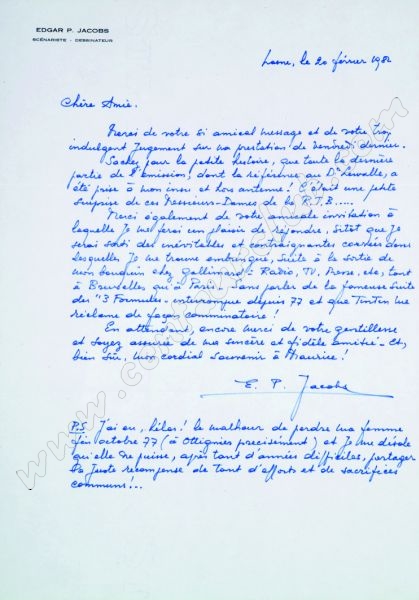 EDGAR P. JACOBS
SCÉNARISTE - DESSINATEUR
Lasne, le 20 février 1982
Chère Amie.
Merci de votre si amical message et de votre trop
indulgent jugement sur ma prestation de vendredi dernier.
Sachez, pour la petite histoire, que toute la dernière
partie de l'émission, dont la référence au Dr Lavalle, a
été prise à mon insu et hors antenne ! C'était une petite
surprise de ces Messieurs-Dames de la R.T.B.....
Merci également de votre amicale invitation à
laquelle je me ferai un plaisir de répondre, sitôt que je
serai sorti des inévitables et contraignantes corvées dans
lesquelles je me trouve embringué, suite à la sortie de
mon bouquin chez Gallimard : Radio, TV, Presse, etc, tant
à Bruxelles qu'à Paris. Sans parler de la fameuse suite
des "3 Formules" interrompue depuis 77 et que Tintin me
réclame de façon comminatoire !
En attendant, encore merci de votre gentillesse
et soyez assurée de ma sincère et fidèle amitié - Et,
bien sûr, mon cordial souvenir à Maurice !
E. P. Jacobs
P.S J'ai eu, hélas ! le malheur de perdre ma femme
fin octobre 77 (à Ottignies précisément) et je me désole
qu'elle ne puisse, après tant d'années difficiles, partager
la juste récompense de tant d'efforts et de sacrifices
communs !..